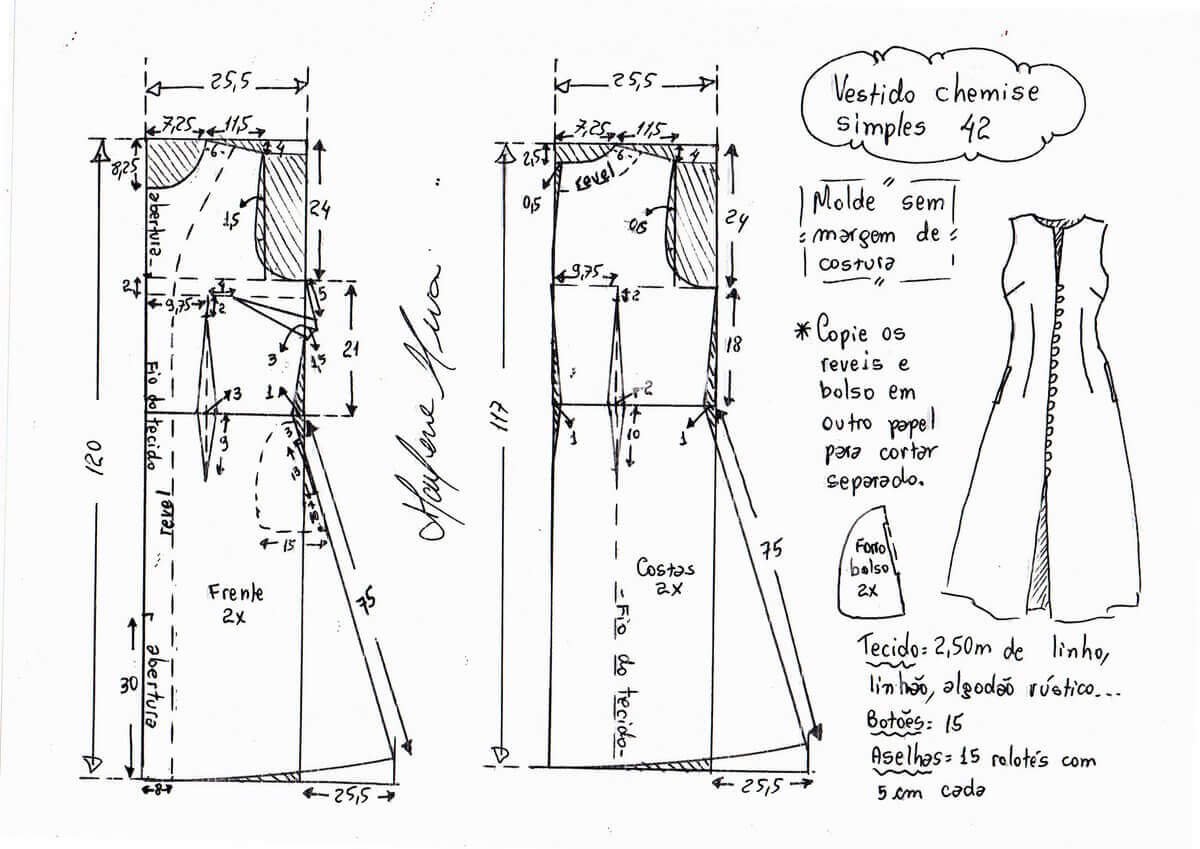 Vestido chemise
simples 42
Molde sem
margem de
costura
* Copie os
reveis e
bolso em
outro papel
para cortar
separado.
Forro
bolso
2x
Tecido: 2,50m de linho,
linhão, algodão rústico...
Botões: 15
Aselhas = 15 rolotés com
5 cm cada
25,5
7,25
11,5
8,25
6
4
abertura
1,5
24
2
4
9,75
2
5
3
1,5
21
Fio do tecido
3
1
9
3
13
120
revel
15
Frente
2x
75
abertura
30
8
25,5
25,5
7,25
11,5
2,5
6
4
revel
0,5
0,5
24
9,75
2
18
2
1
10
1
117
75
Costas
2x
- Fio do tecido -
25,5